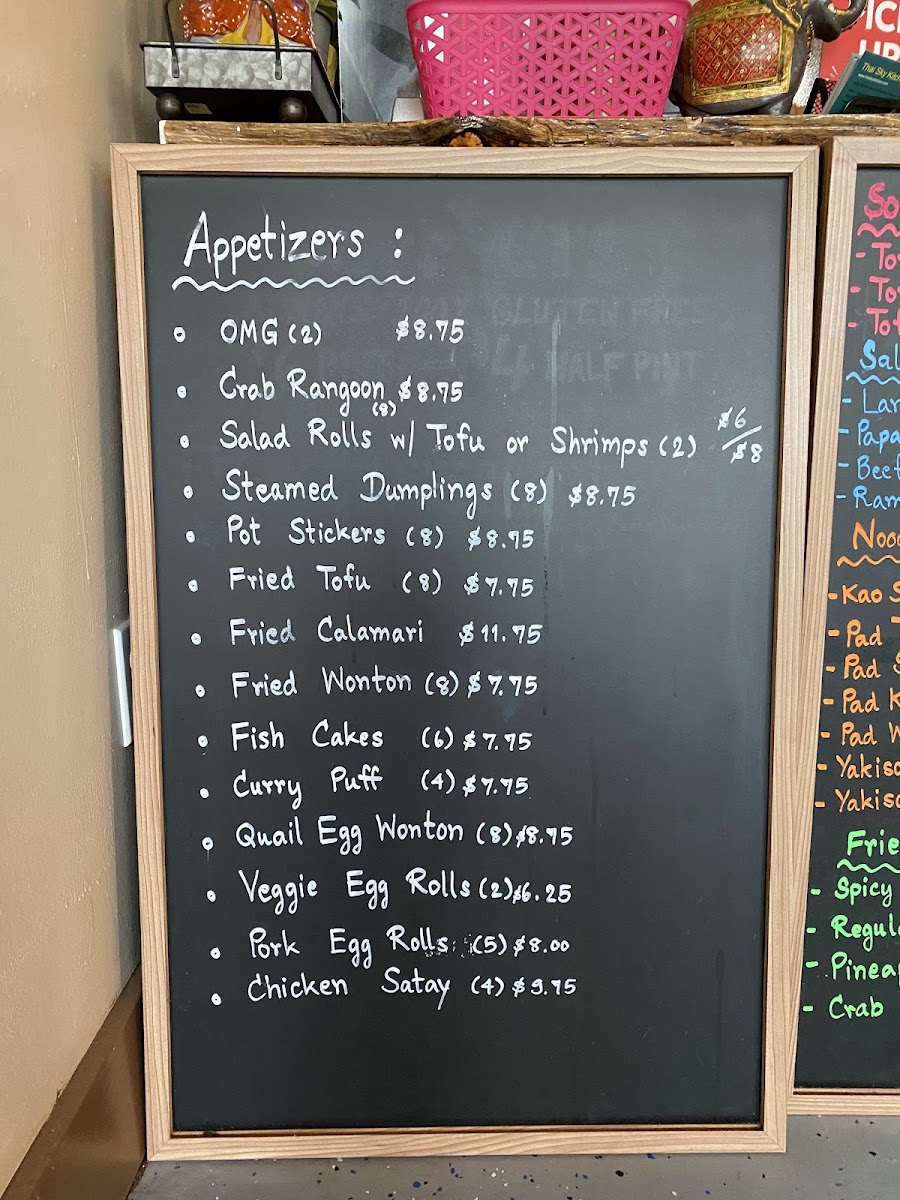 PICK
UP
Thai Sky Kitchen
Appetizers :
OMG (2) $8.75
Crab Rangoon (8) $8.75
Salad Rolls w/ Tofu or Shrimps (2) $6/$8
Steamed Dumplings (8) $8.75
Pot Stickers (8) $8.75
Fried Tofu (8) $7.75
Fried Calamari $11.75
Fried Wonton (8) $7.75
Fish Cakes (6) $7.75
Curry Puff (4) $7.75
Quail Egg Wonton (8) $8.75
Veggie Egg Rolls (2) $6.25
Pork Egg Rolls (5) $8.00
Chicken Satay (4) $9.75
GLUTEN FREE
4 HALF PINT
- Kao S
- Pad
- Pad S
- Pad K
- Pad W
- Yakiso
- Yakiso
Frie
- Spicy
- Regul
- Pineap
- Crab